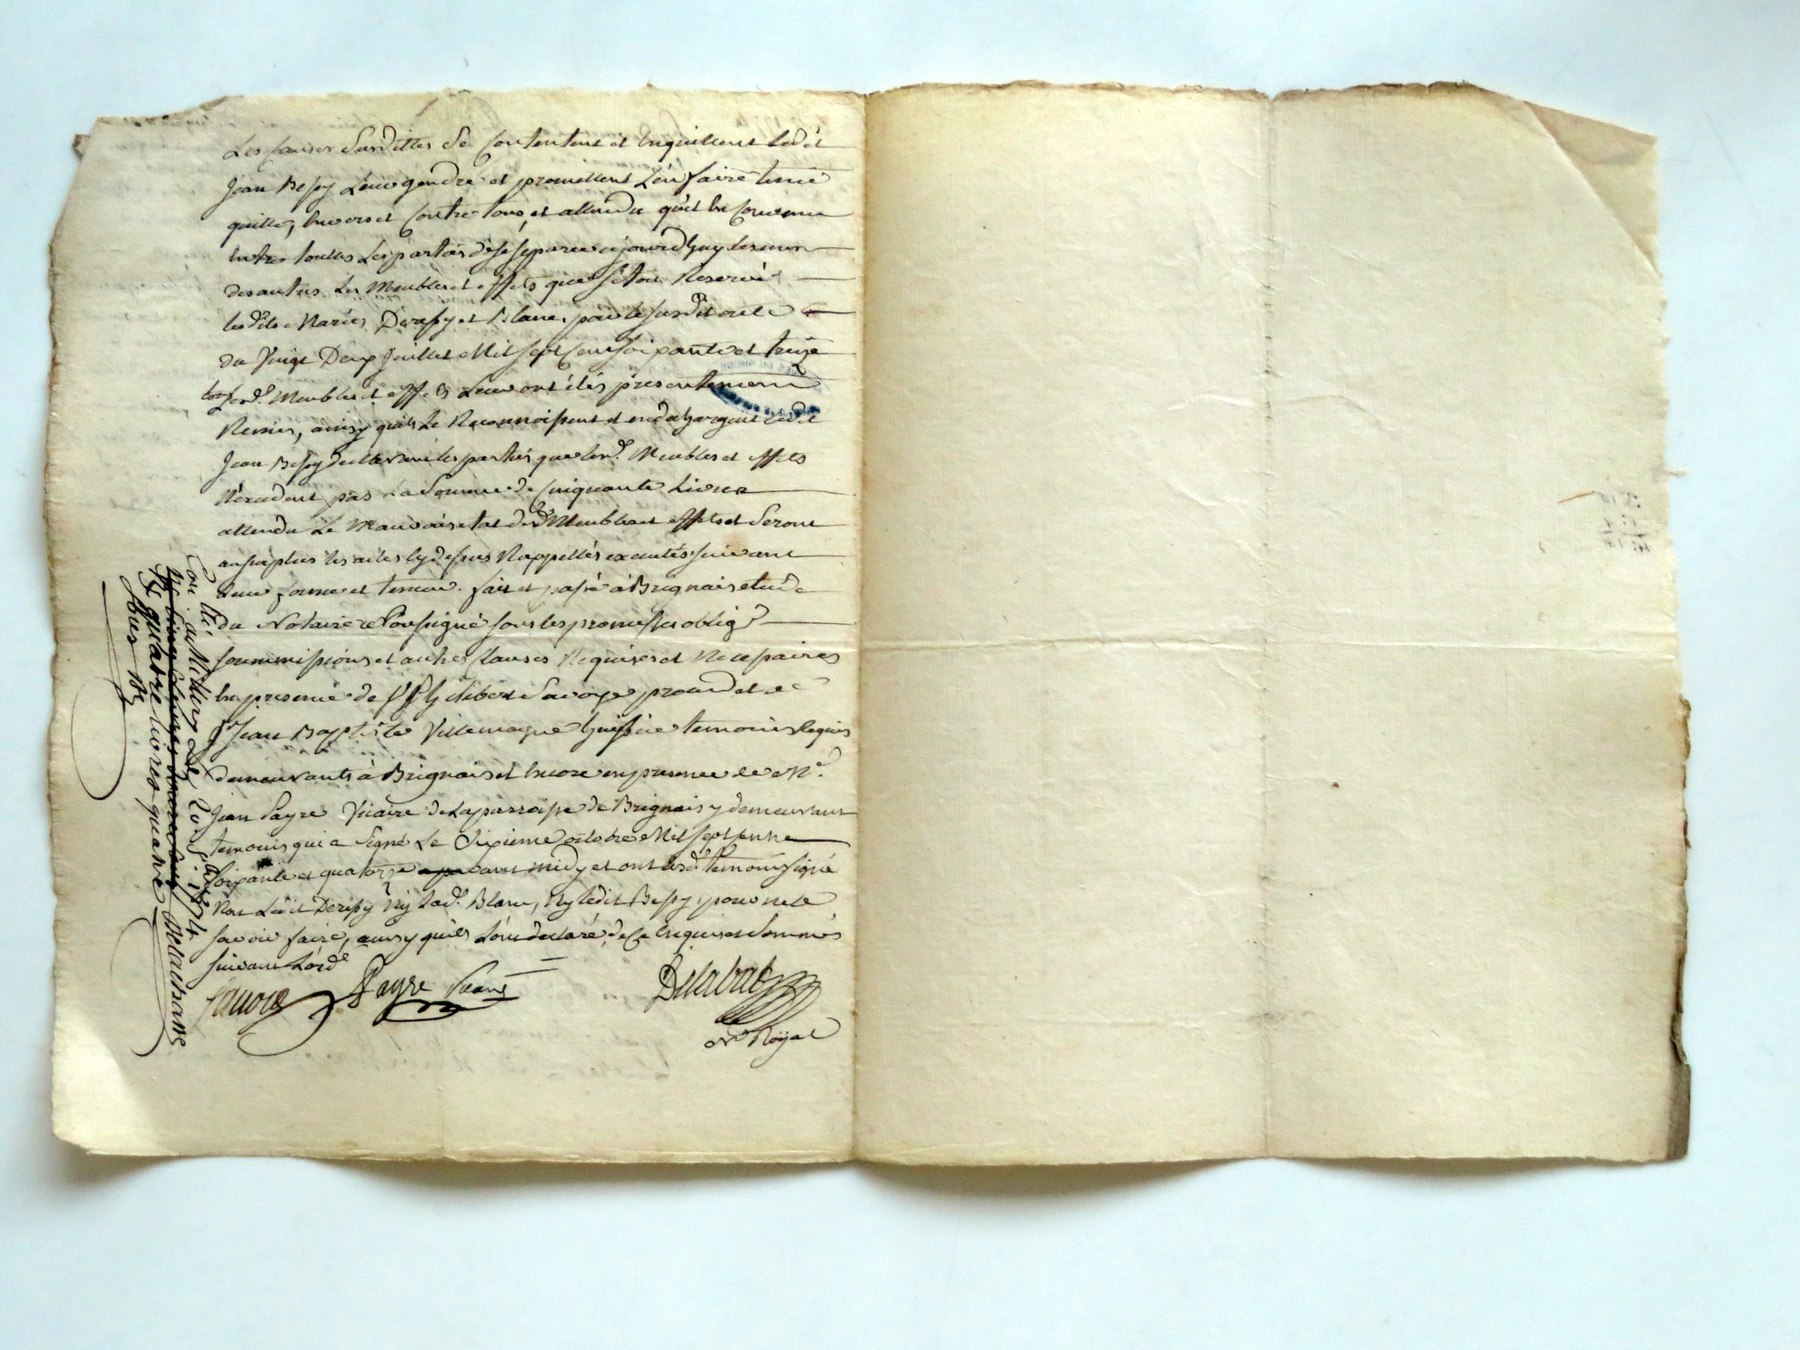 Les Causes Susdittes Se Contentent et enquittent ledit
Jean Bessy Leur gendre et promettent L'en faire tenir
quitte, envers et Contre tous, et attendu qu'il est Convenu
entres touttes Les parties de se separer aujourd'huy les uns
des autres Les Meubles et effets que s'étoit Reservé
lesdits Mariés Derissy et Blanc, par le susdit acte
du Vingt Deux Juillet Mil sept Cent soixante et treize
Lesd. Meubles et effets Leur ont étés présentement
Remis, ainsy qu'ils Le Reconnoissent et en déchargent ledit
Jean Bessy declarant les parties que lesd. Meubles et effets
N'excedent pas La Somme de Cinquante Livres
attendu Le Mauvais etat desd. Meubles et effets et Seront
au surplus les actes cy dessus Rappellés executés suivant
Leur forme et teneur. fait et passé à Brignais etude
du Notaire Soussigné sous les promesses oblig.
soummissions et autres Clauses Requises et Necessaires
en presence de Sr Gilibert Savoye et de
Sr Jean Baptiste Villemagne huissier temoins Requis
demeurants à Brignais et encore en presence de Me.
Jean Payre Vicaire de La parroisse de Brignais y demeurant
temoins qui a Signé Le Sixieme octobre Mil sept cent
soixante et quatorze avant midy et ont lesd. temoins signé
Non Ledit Derissy Ny Lad. Blanc, Ny ledit Bessy, pour ne le
savoir faire, ainsy qu'ils L'ont declaré, de Ce enquis et Sommés
suivant L'ord.
Savoie Payre Delabat
Nre Royal
Con lé au Mettery Le 1774
R quatre livres quatre
sous